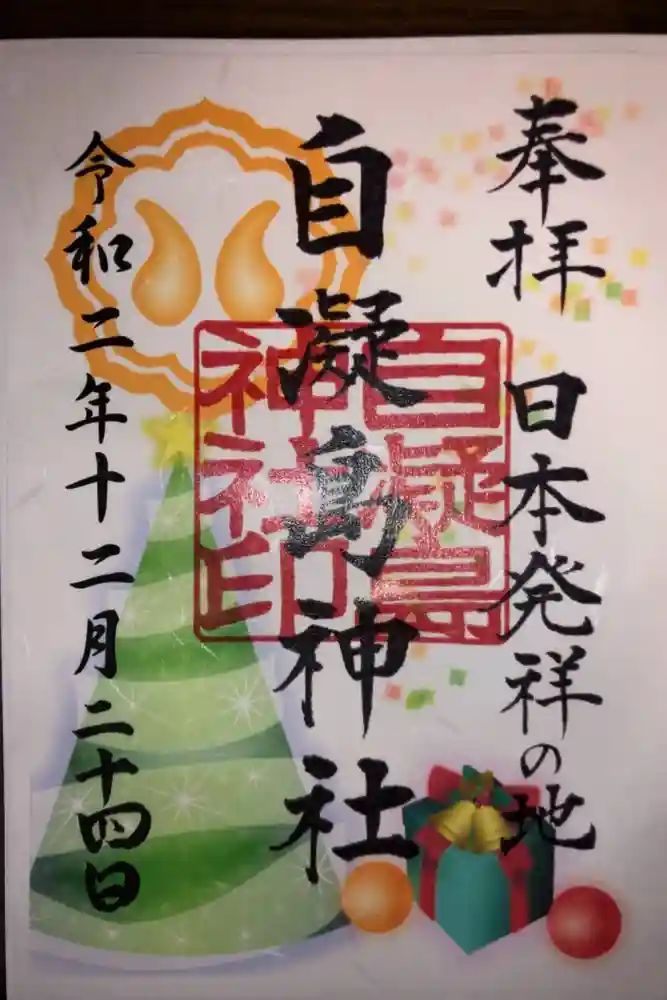 奉拝
日本発祥の地
自凝島神社
自凝島
神社印
令和二年十二月二十四日